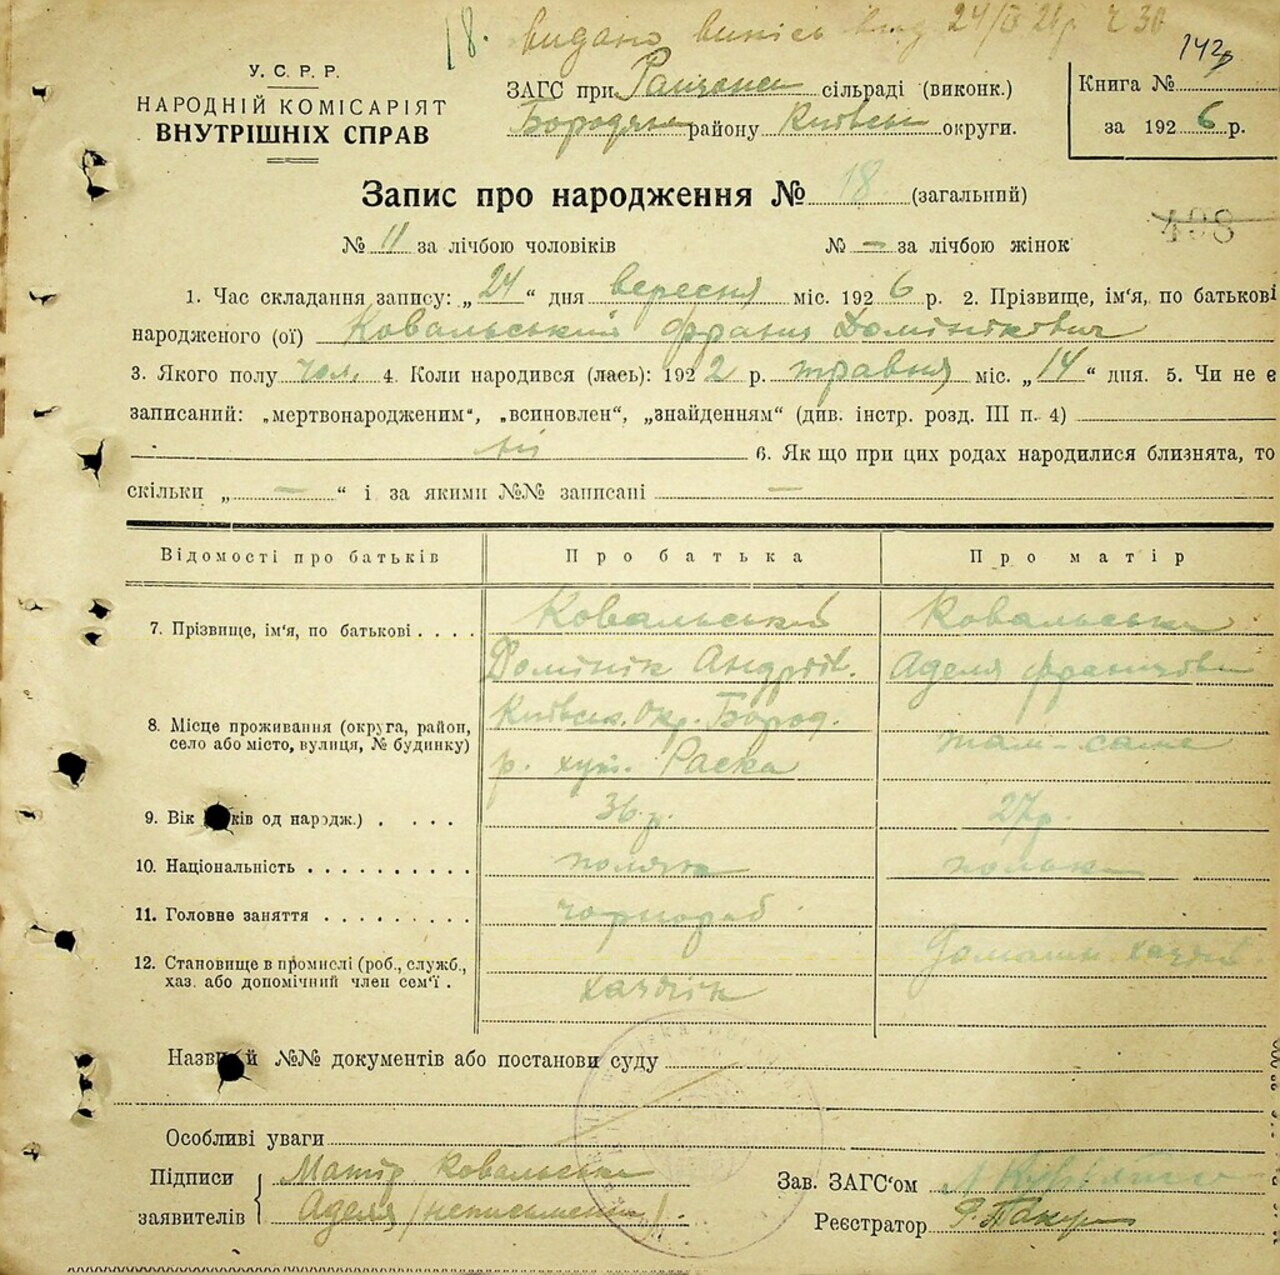 18. видано випісь 24/IX 26р. ч 30
142
У. С. Р. Р.
НАРОДНІЙ КОМІСАРІЯТ
ВНУТРІШНІХ СПРАВ
ЗАГС при сільраді (виконк.)
Бородян району Київськ округи.
Книга №
за 1926 р.
Запис про народження № 18 (загальний)
498
№ 11 за лічбою чоловіків № — за лічбою жінок
1. Час складання запису: „24“ дня вересня міс. 1926 р. 2. Прізвище, ім'я, по батькові
народженого (ої) Ковальський Франц Домінікович
3. Якого полу чол. 4. Коли народився (лась): 1922 р. травня міс. „14“ дня. 5. Чи не є
записаний: „мертвонародженим“, „всиновлен“, „знайденням“ (див. інстр. розд. III п. 4)
ні 6. Як що при цих родах народилися близнята, то
скільки „—“ і за якими №№ записані —
Відомості про батьків Про батька Про матір
7. Прізвище, ім'я, по батькові . . . . Ковальський Ковальська
Домінік Андріїв. Аделя Францівна
8. Місце проживання (округа, район, Київськ. окр. Бород.
село або місто, вулиця, № будинку) р. хут. Раска там-саме
9. Вік ків од народж.) . . . . 36 р. 27 р.
10. Національність . . . . . . . . . . поляк полька
11. Головне заняття . . . . . . . . . чорнороб
12. Становище в промислі (роб., служб., Домашн. хазяй
хаз. або допомічний член сем'ї . хазяїн
Назв й №№ документів або постанови суду
Особливі уваги
Підписи Матір Ковальська
заявителів Аделя (неписьменна)
Зав. ЗАГС'ом
Реєстратор